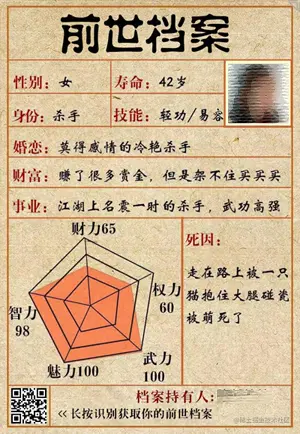 前世档案
性别：女
寿命：42岁
身份：杀手
技能：轻功/易容
婚恋：莫得感情的冷艳杀手
财富：赚了很多赏金，但是架不住买买买
事业：江湖上名震一时的杀手，武功高强
财力65
权力
60
武力
100
魅力100
智力
98
死因：
走在路上被一只
猫抱住大腿碰瓷
被萌死了
档案持有人：
<< 长按识别获取你的前世档案